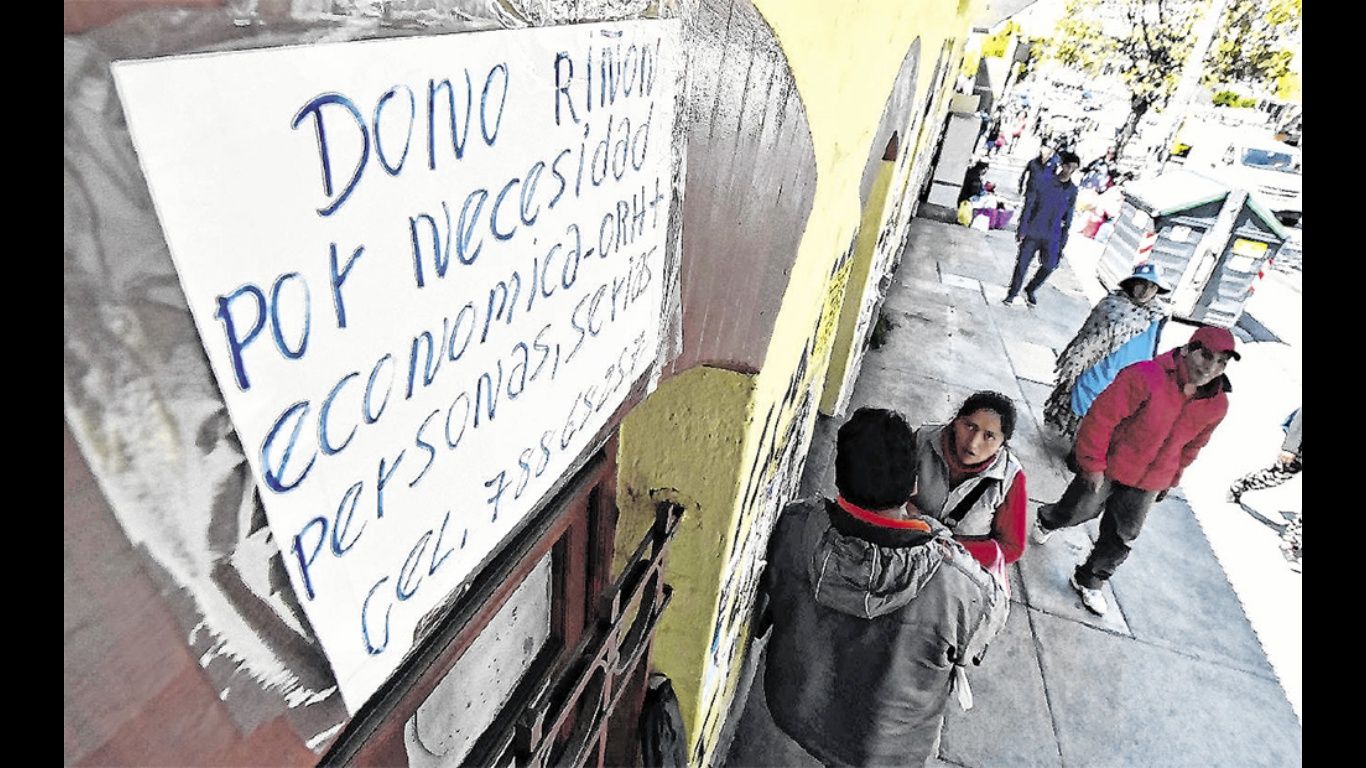 DONO RIÑON
por necesidad
economica-ORH+
personas, serias
CEL, 78868257